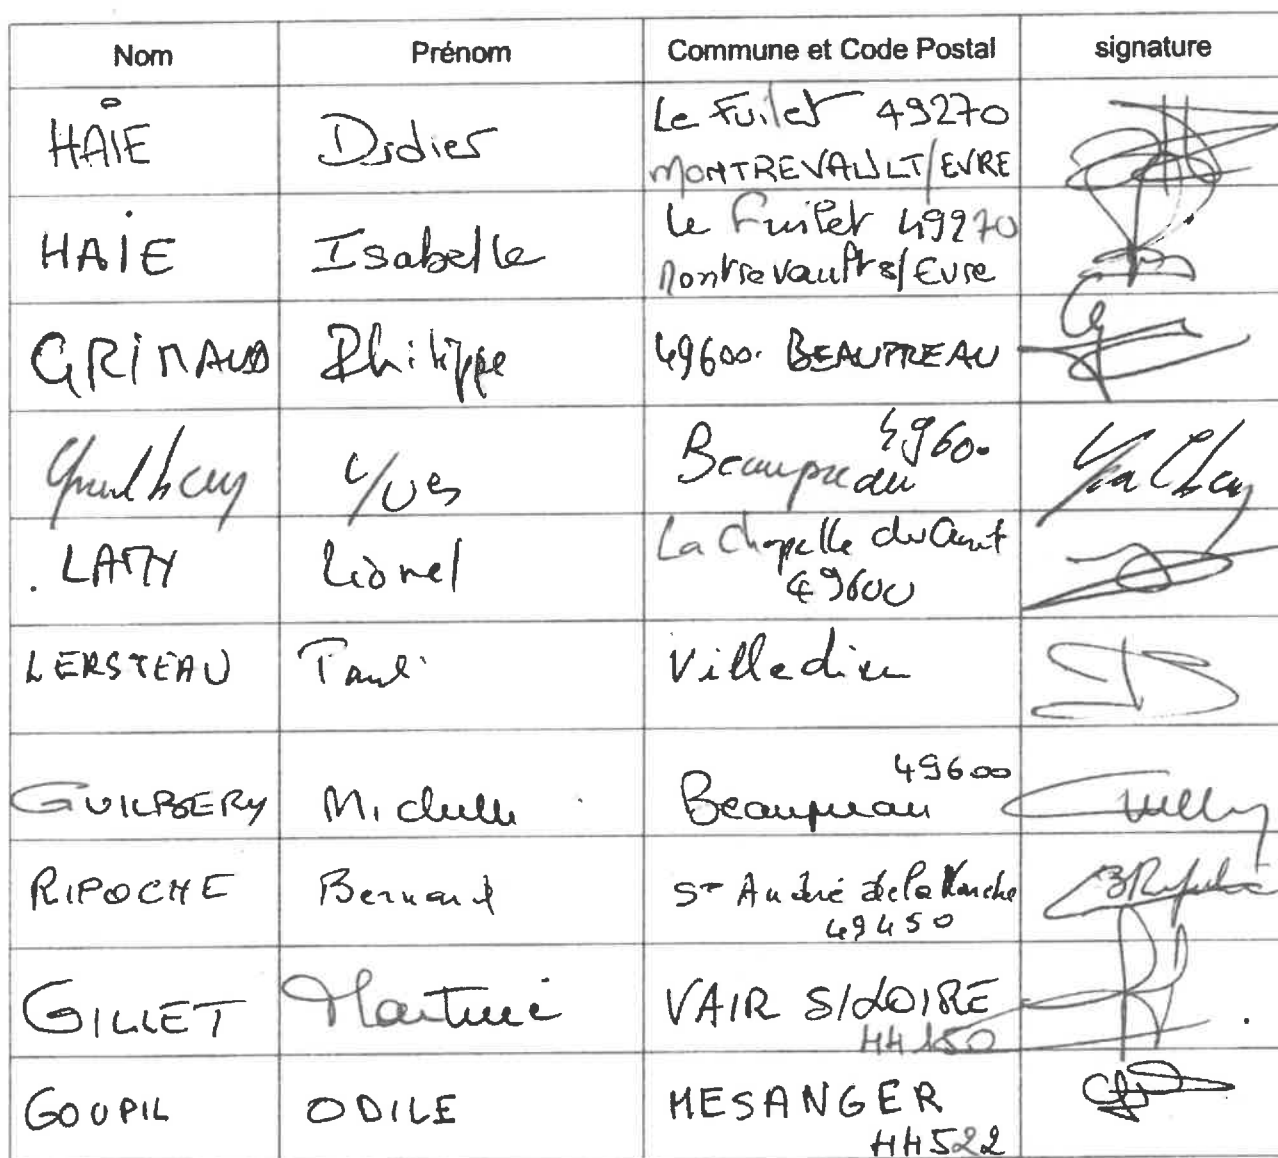 Nom Prénom Commune et Code Postal signature
HAIE Didier Le Fuilet 49270
MONTREVAULT/EVRE
HAIE Isabelle Le Fuilet 49270
Montrevault s/Evre
GRIMAUD Philippe 49600. BEAUPREAU
Yves Beaupreau 49600
LAMY Lionel La Chapelle du Genêt
49600
LERSTEAU Paul Villedieu
GUILBERY Michelle Beaupreau 49600
RIPOCHE Bernard St André de la Marche
49450
GILLET Martine VAIR S/LOIRE
44150
GOUPIL ODILE MESANGER
44522